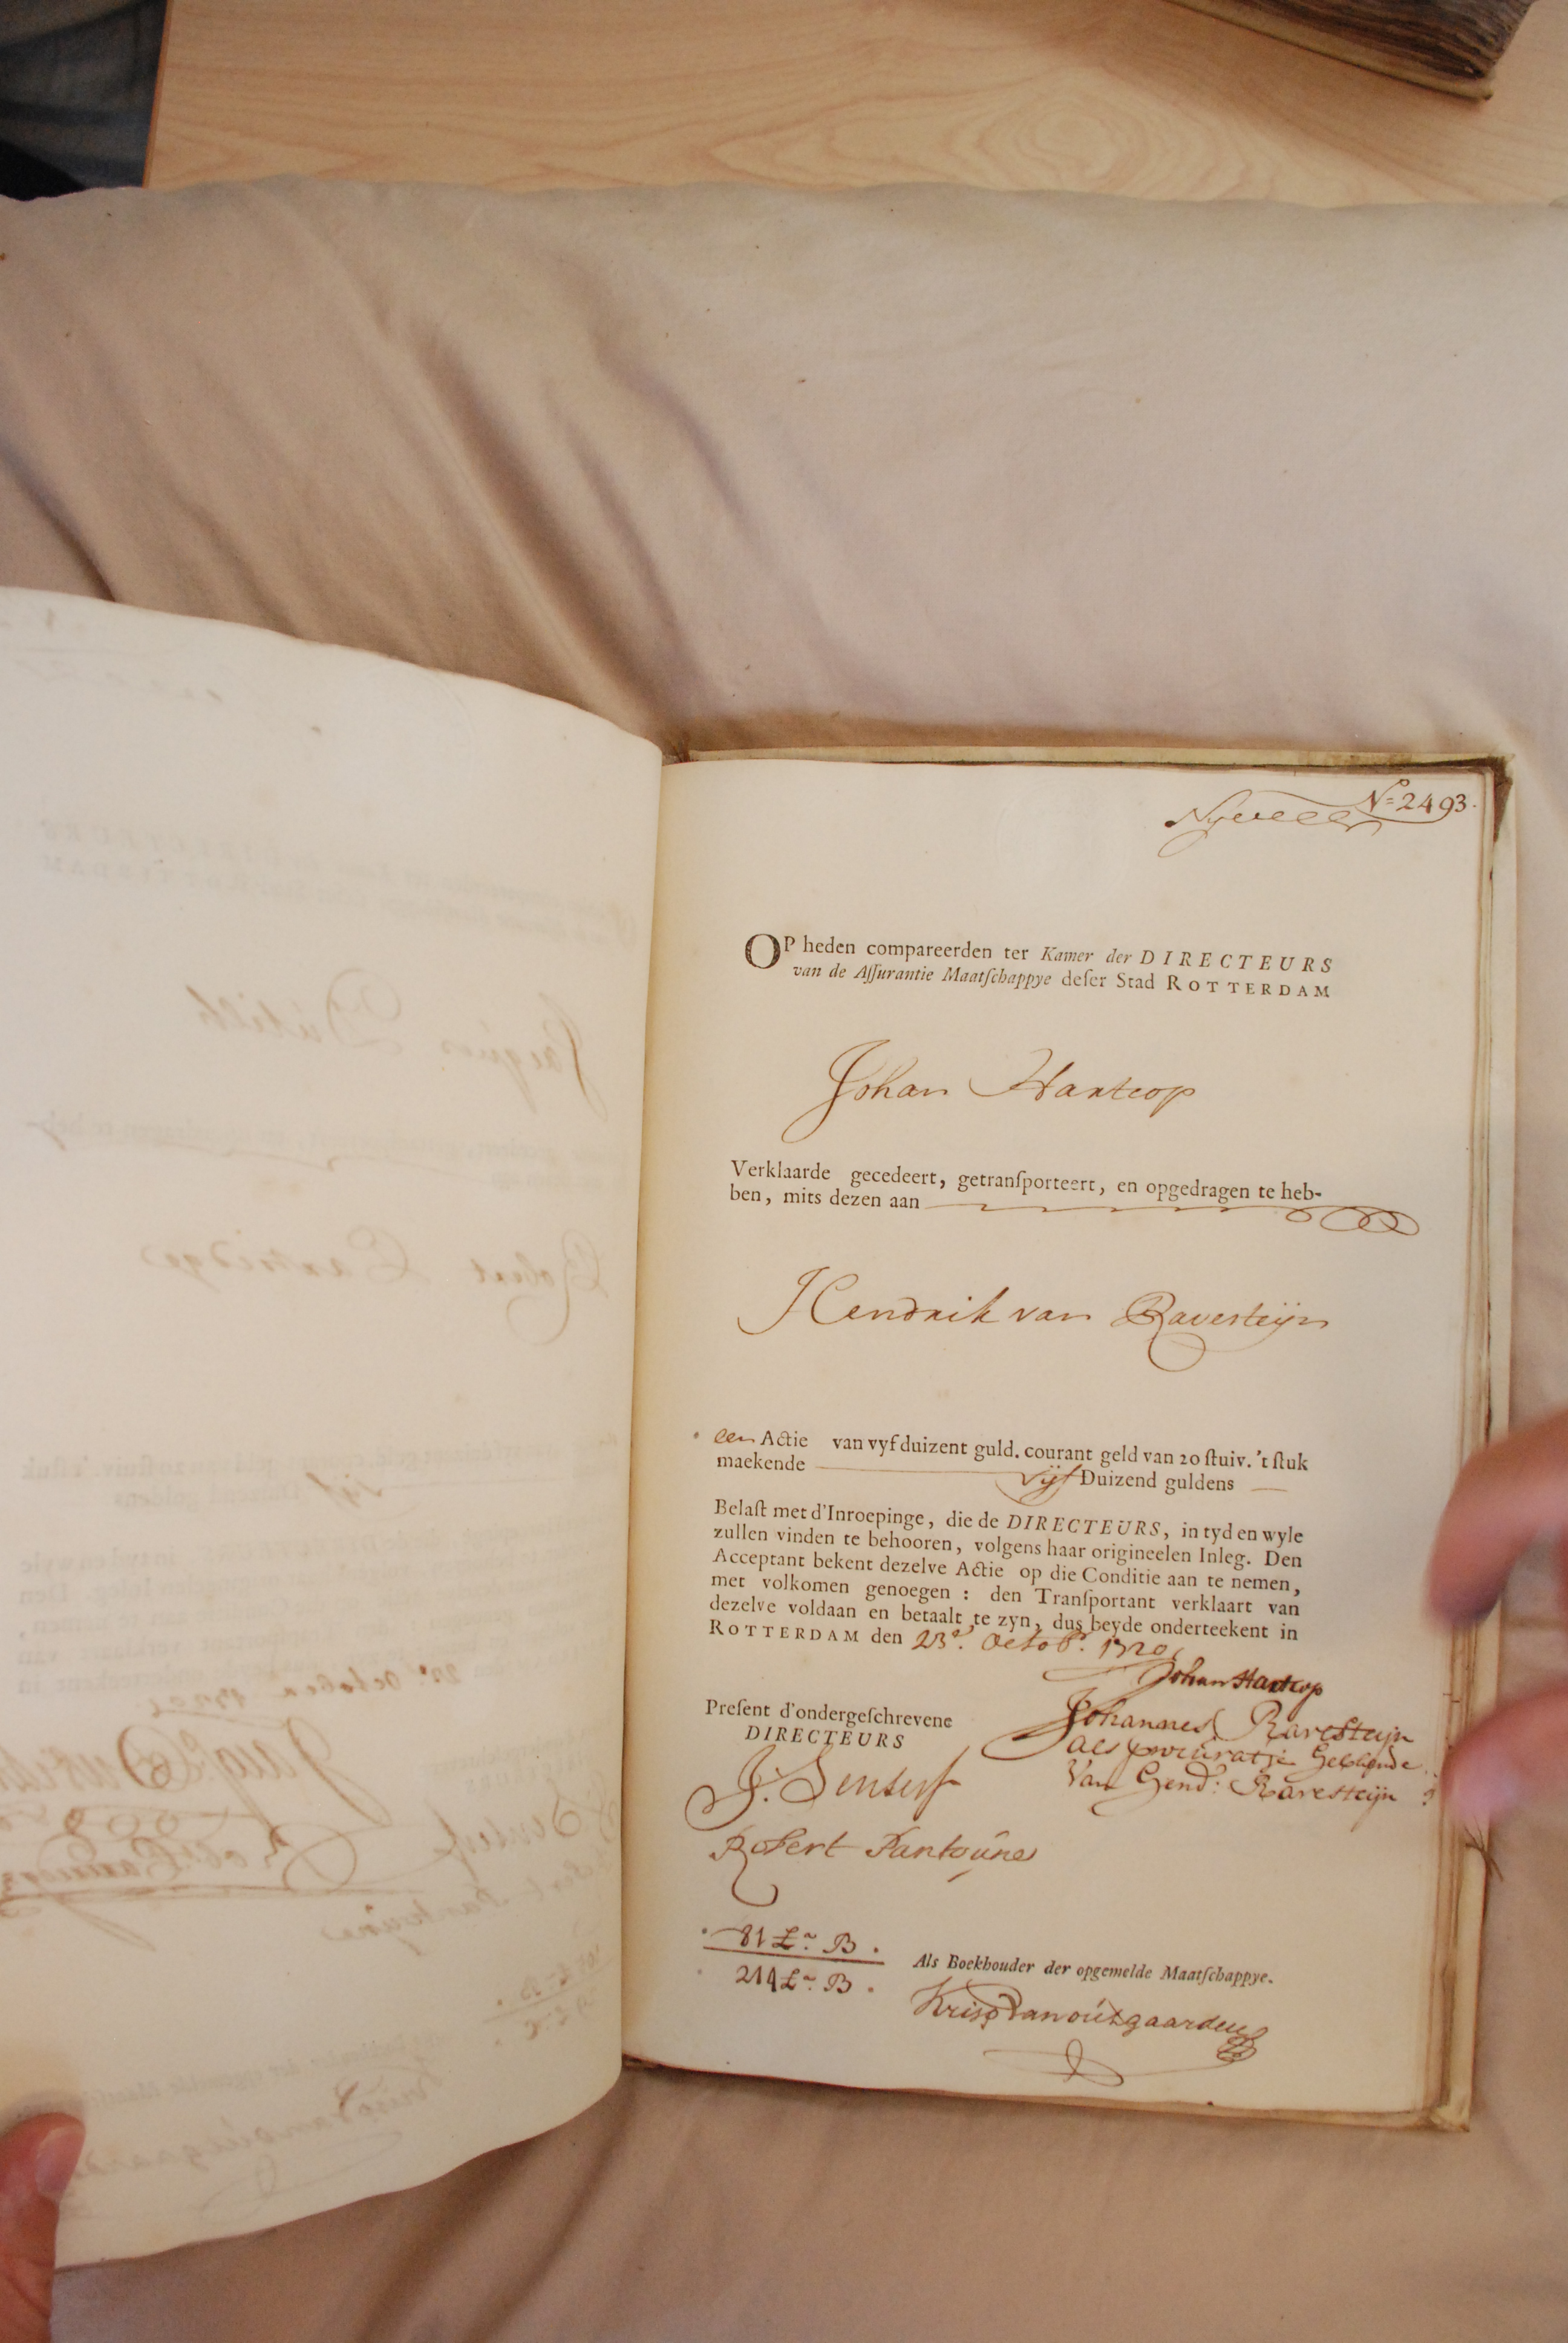 Nº 2493.
OP heden compareerden ter Kamer der DIRECTEURS
van de Aſſurantie Maatſchappye deſer Stad ROTTERDAM
Johan Hartcop
Verklaarde gecedeert, getranſporteert, en opgedragen te heb-
ben, mits dezen aan
Hendrik van Ravesteijn
een Actie van vyf duizent guld. courant geld van 20 ſtuiv. 't ſtuk
maekende vijf Duizend guldens
Belaſt met d'Inroepinge, die de DIRECTEURS, in tyd en wyle
zullen vinden te behooren, volgens haar origineelen Inleg. Den
Acceptant bekent dezelve Actie op die Conditie aan te nemen,
met volkomen genoegen : den Tranſportant verklaart van
dezelve voldaan en betaalt te zyn, dus beyde onderteekent in
ROTTERDAM den 23e. Octob. 1720
Johan Hartcop
Johannes Ravesteijn
als procuratie
Van Hend: Ravesteijn
Preſent d'ondergeſchrevene
DIRECTEURS
J. Senserf
Robert Fantoúne
81 La B.
214 La B.
Als Boekhouder der opgemelde Maatſchappye.
Kriso Van oútgaarden